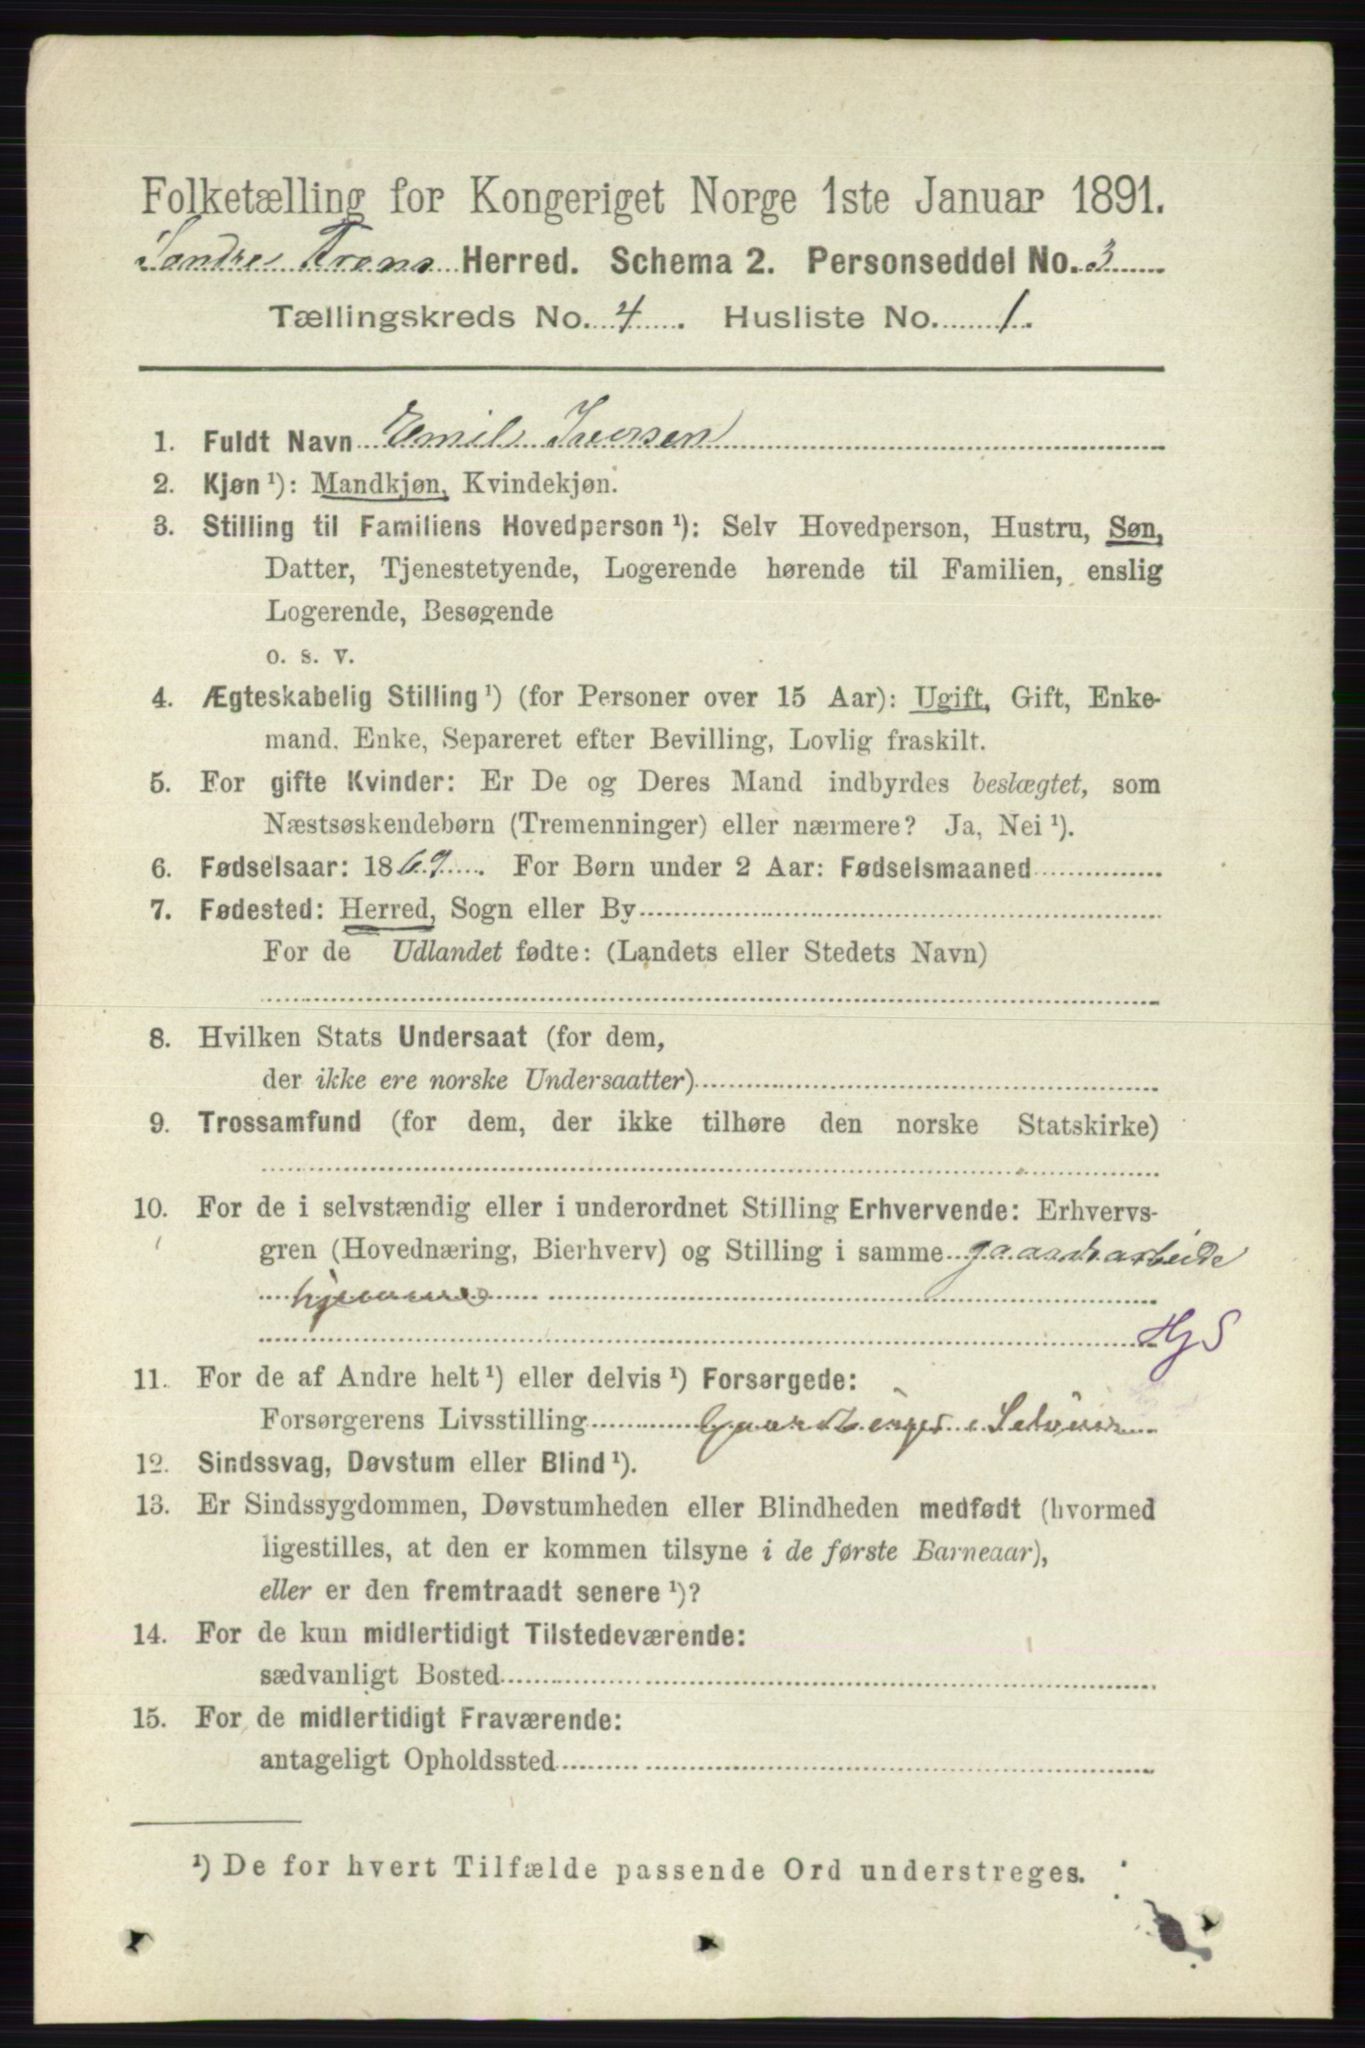 Folketælling for Kongeriget Norge 1ste Januar 1891.
Søndre Trons Herred. Schema 2. Personseddel No. 3
Tællingskreds No. 4. Husliste No. 1.
1. Fuldt Navn Emil Iversen
2. Kjøn ¹): Mandkjøn, Kvindekjøn.
3. Stilling til Familiens Hovedperson ¹): Selv Hovedperson, Hustru, Søn,
Datter, Tjenestetyende, Logerende hørende til Familien, enslig
Logerende, Besøgende
o. s. v.
4. Ægteskabelig Stilling ¹) (for Personer over 15 Aar): Ugift, Gift, Enke-
mand, Enke, Separeret efter Bevilling, Lovlig fraskilt.
5. For gifte Kvinder: Er De og Deres Mand indbyrdes beslægtet, som
Næstsøskendebørn (Tremenninger) eller nærmere? Ja, Nei ¹).
6. Fødselsaar: 1869. For Børn under 2 Aar: Fødselsmaaned
7. Fødested: Herred, Sogn eller By
For de Udlandet fødte: (Landets eller Stedets Navn)
8. Hvilken Stats Undersaat (for dem,
der ikke ere norske Undersaatter)
9. Trossamfund (for dem, der ikke tilhøre den norske Statskirke)
10. For de i selvstændig eller i underordnet Stilling Erhvervende: Erhvervs-
gren (Hovednæring, Bierhverv) og Stilling i samme gaardsarbeide
hjemme
HjS
11. For de af Andre helt ¹) eller delvis ¹) Forsørgede:
Forsørgerens Livsstilling Gaardbruger Selveier
12. Sindssvag, Døvstum eller Blind ¹).
13. Er Sindssygdommen, Døvstumheden eller Blindheden medfødt (hvormed
ligestilles, at den er kommen tilsyne i de første Barneaar),
eller er den fremtraadt senere ¹)?
14. For de kun midlertidigt Tilstedeværende:
sædvanligt Bosted
15. For de midlertidigt Fraværende:
antageligt Opholdssted
¹) De for hvert Tilfælde passende Ord understreges.